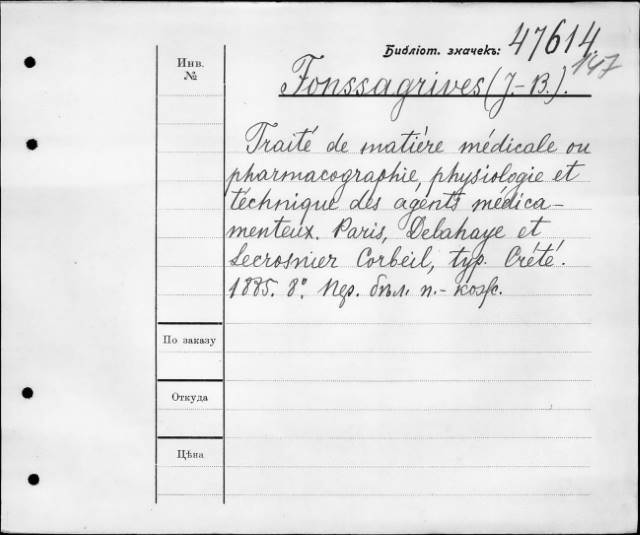 Библіот. значекъ: 47614.
147
Инв.
№
Fonssagrives (J-B.).
Traité de matiére médicale ou
pharmacographie, physiologie et
téchnique des agents médica-
menteux. Paris, Delahaye et
Lecrosnier Corbeil, typ. Crété.
1885. 8°. Пер. бѣл. п.-кож.
По заказу
Откуда
Цѣна